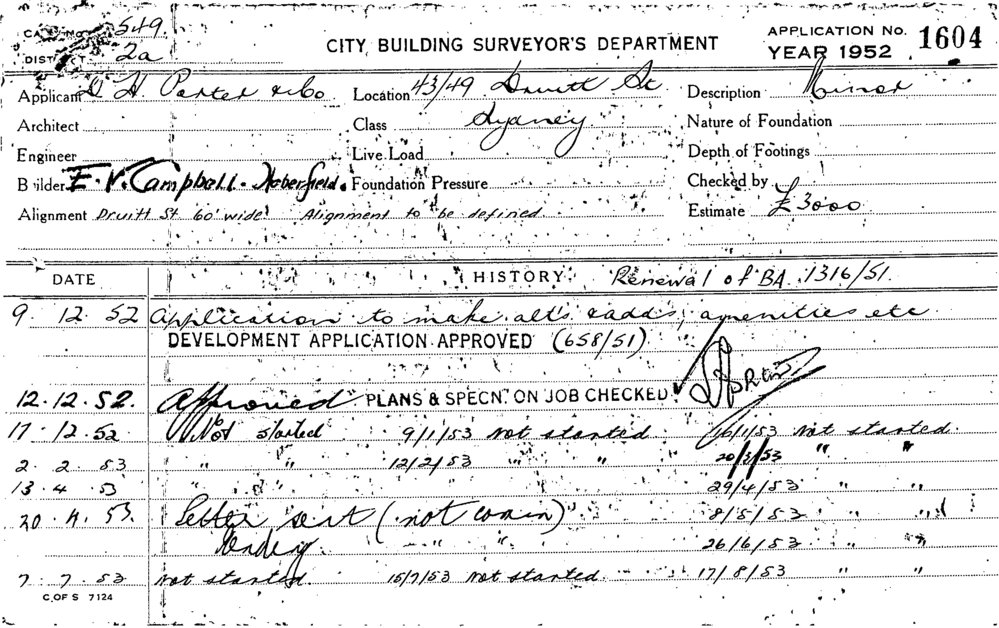 CARD No. 549.
DISTRICT 2a
CITY BUILDING SURVEYOR'S DEPARTMENT
APPLICATION No. 1604
YEAR 1952
Applicant D H Porter & Co Location 43/49 Druitt St Description Minor
Architect Class Sydney Nature of Foundation
Engineer Live Load Depth of Footings
Builder E. V. Campbell. Haberfield. Foundation Pressure Checked by
Alignment Druitt St 60' wide Alignment to be defined Estimate £3000
DATE HISTORY Renewal of BA. 1316/51.
9. 12. 52 Application to make alt's & add's, amenities etc
DEVELOPMENT APPLICATION APPROVED (658/51)
12. 12. 52. Approved PLANS & SPECN. ON JOB CHECKED
17. 12. 52 Not started 9/1/53 not started 16/1/53 not started.
2. 2. 53 " " 12/2/53 " " 20/3/53 " "
13. 4. 53 " " 29/4/53 " "
30. 4. 53. Letter sent (not comm) 8/5/53 " "
" " 26/6/53 " "
7. 7. 53 not started. 15/7/53 not started. 17/8/53 " "
C. OF S 7124